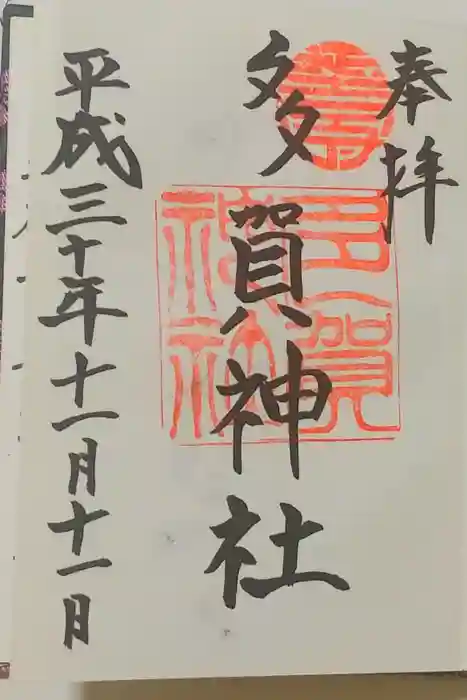 奉拝
多賀神社
多賀
神社
平成三十年十一月十一日